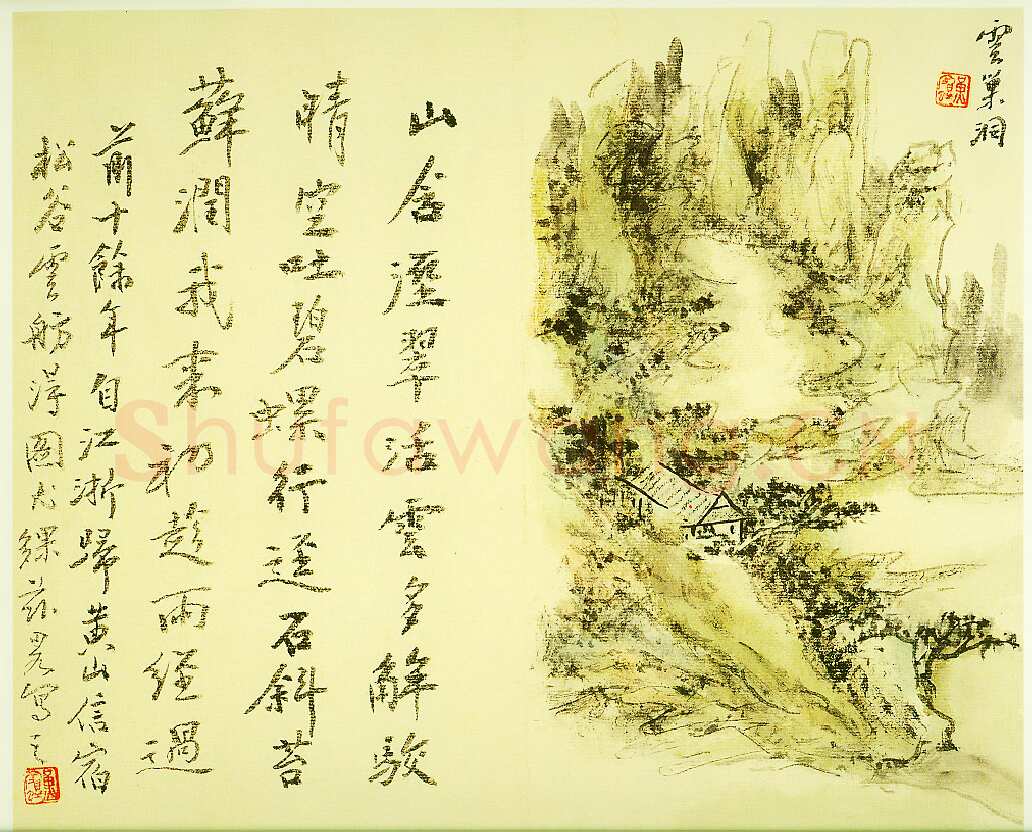 雲巢洞
山含溼翠活雲多解駮
晴空吐碧螺行逕石斜苔
蘚潤我来初趂雨經過
前十餘年自江浙歸黃山信宿
松谷雲舫淂圖尤夥茲畧寫之
Shufawang.CN